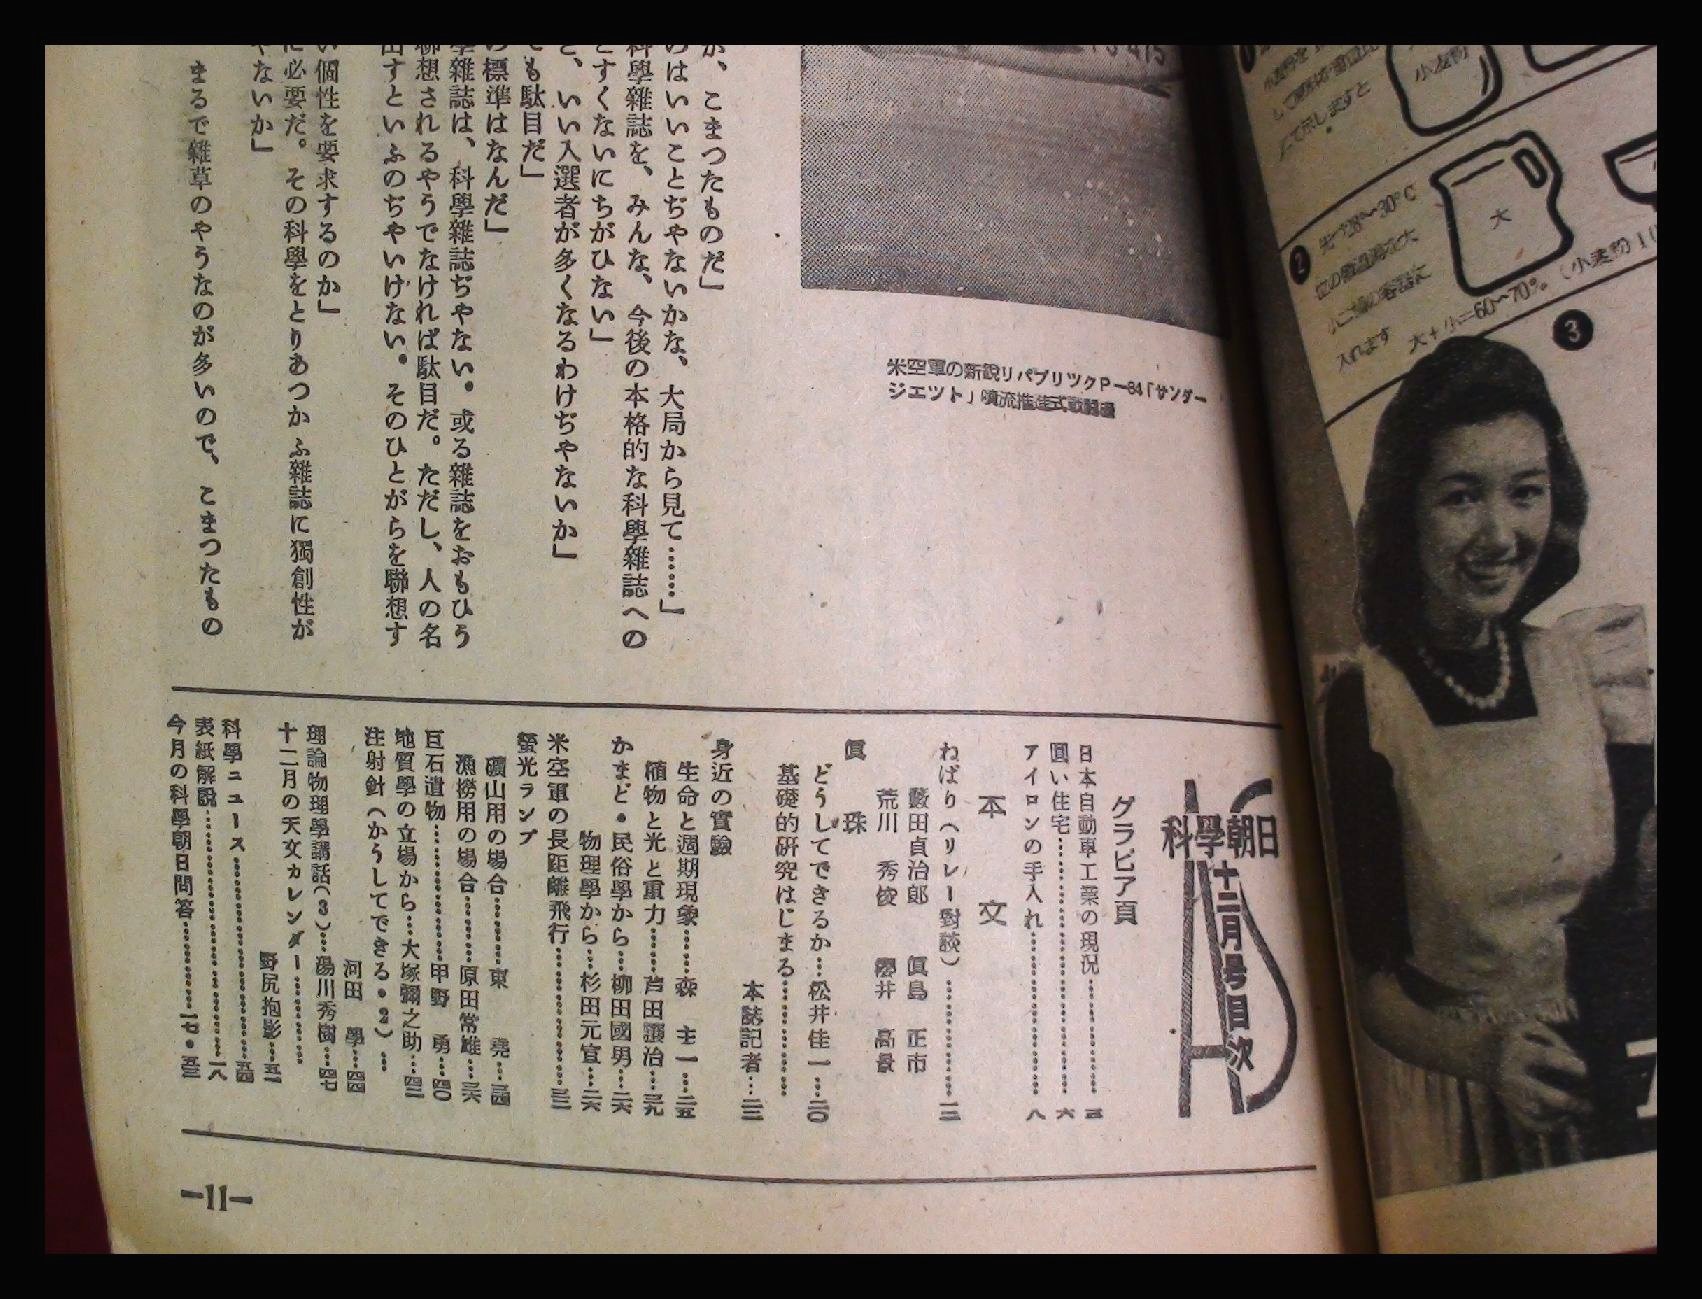 が、こまつたものだ」
のはいいことぢやないかな、大局から見て……」
科學雜誌を、みんな、今後の本格的な科學雜誌への
とすくないにちがひない」
と、いい入選者が多くなるわけぢやないか」
ても駄目だ」
の標準はなんだ」
學雜誌は、科學雜誌ぢやない。或る雜誌をおもひう
聯想されるやうでなければ駄目だ。ただし、人の名
出すといふのぢやいけない。そのひとがらを聯想す
い個性を要求するのか」
に必要だ。その科學をとりあつかふ雜誌に獨創性が
やないか」
まるで雜草のやうなのが多いので、こまつたもの
米空軍の新鋭リパブリツクP—84「サンダー
ジエツト」噴流推進式戰鬪機
科學朝日
十二月号目次
グラビア頁
日本自動車工業の現況………三
圓い住宅………六
アイロンの手入れ………八
本文
ねばり(リレー對談)………一二
藪田貞治郎 眞島正市
荒川秀俊 櫻井高景
眞珠
どうしてできるか…松井佳一…二〇
基礎的研究はじまる………
本誌記者…二三
身近の實驗
生命と週期現象……森主一…二五
植物と光と重力……芦田讓治…三九
かまど・民俗學から…柳田國男…二六
物理學から…杉田元宜…二六
米空軍の長距離飛行………三三
螢光ランプ
礦山用の場合………東堯…三四
漁撈用の場合………原田常雄…三六
巨石遺物………甲野勇…四〇
地質學の立場から…大塚彌之助…四二
注射針(かうしてできる・2)…
河田學…四四
理論物理學講話(3)…湯川秀樹…四七
十二月の天文カレンダー………
野尻抱影…五一
科學ニュース………五四
表紙解説………一八
今月の科學朝日問答………一七・五三
—11—
小麦粉
にて示しますと
2
先づ28〜30°C
位の微温湯を大
小二個の容器に
入れます
大
大+小=60〜70%
(小麦粉1
3